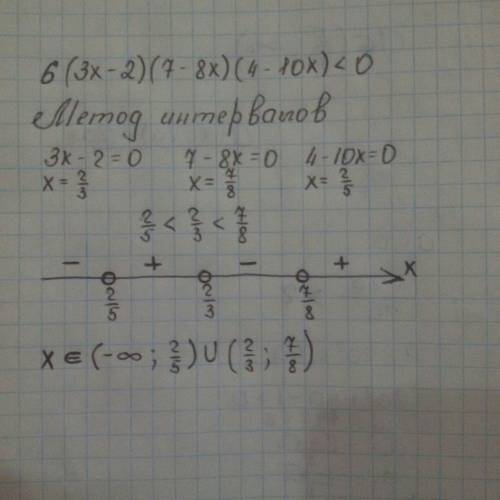 6(3x-2)(7-8x)(4-10x)<0
Метод интервалов
3x-2=0 7-8x=0 4-10x=0
x=2/3 x=7/8 x=2/5
2/5 < 2/3 < 7/8
- + - + x
2/5 2/3 7/8
x∈(-∞; 2/5)∪(2/3; 7/8)